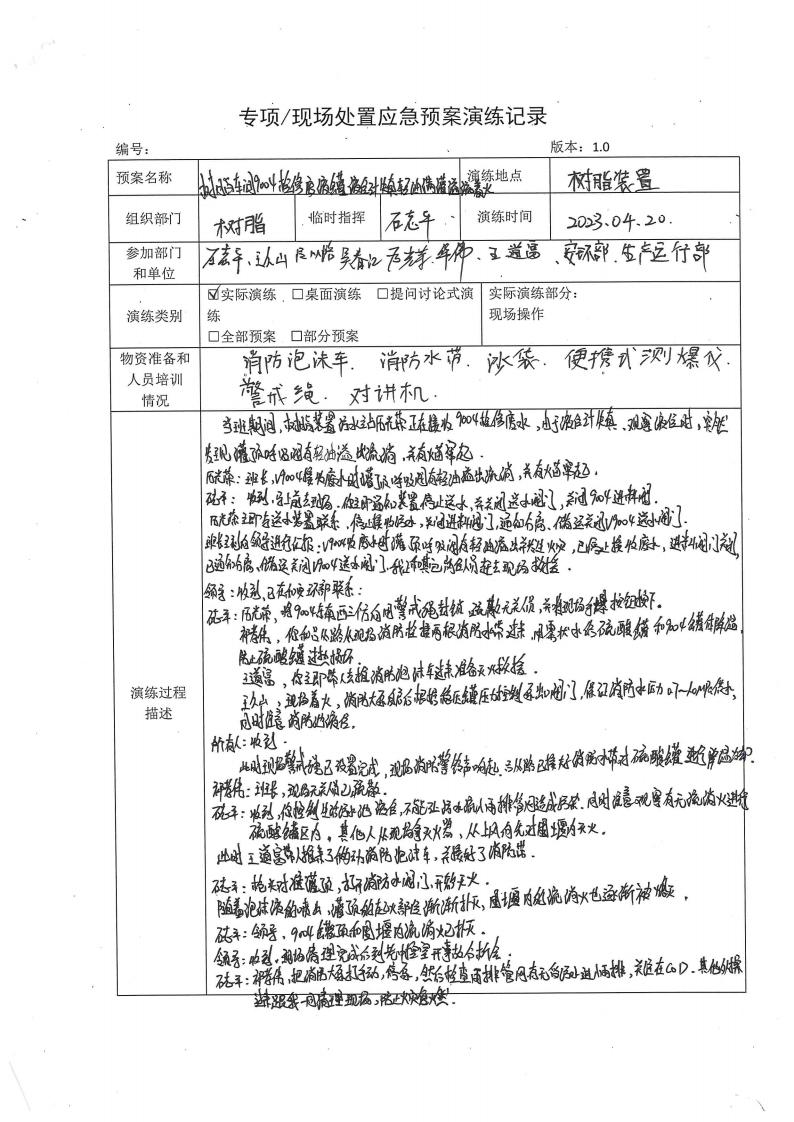 专项/现场处置应急预案演练记录
编号： 版本：1.0
预案名称 树脂车间9004检修废液罐液位计失真轻油满罐流淌着火 演练地点 树脂装置
组织部门 树脂 临时指挥 石志平 演练时间 2023.04.20.
参加部门和单位 石志平、王从山 吴春江 王道富、安环部、生产运行部
演练类别 ☑实际演练 □桌面演练 □提问讨论式演练 实际演练部分：
□全部预案 □部分预案 现场操作
物资准备和人员培训情况 消防泡沫车、消防水带、沙袋、便携式测爆仪、
警戒绳、对讲机.
演练过程描述
当班期间，树脂装置污水站 正在接收9004检修废水，由于液位计失真，观察液位时，突然
发现罐顶呼吸阀有轻油溢出流淌，并有火苗窜起.
班长，V9004接收废水时罐顶呼吸阀有轻油溢出流淌，并有火苗窜起.
收到，马上前去现场. 你立即通知装置停止送水，并关闭送水阀门，关闭9004进料阀.
立即与送水装置联系，停止接收污水，关闭进料阀门，通知 ，储运关闭V9004送水阀门.
班长立即向领导进行汇报：V9004收废水时罐顶呼吸阀有轻油溢出并发生火灾，已停止接收废水，进料阀门关闭，
已通知 ，储运关闭V9004送水阀门，我正和其它岗位人员赶去现场救援.
领导：收到，已在和安环部联系；
将9004东南西三个方向用警戒绳封锁，疏散无关人员，并将现场手报按钮按下.
你和吕从路从现场消防栓接两根消防水带过来，用雾状水给硫酸罐和9004罐体降温，
防止硫酸罐过热损坏.
王道富，你立即带人去推消防泡沫车过来准备灭火救援.
王从山，现场着火，消防大泵启后根据稳压罐压力控制泵出口阀门，保证消防水压力0.7~1.0MPa供水，
同时注意消防池液位.
所有人：收到.
此时现场警戒绳已设置完成，现场消防警铃声响起. 吕从路已接好消防水带对硫酸罐进行降温
班长，现场无关人员已疏散.
收到，你控制 污水池液位，不能让污水流入雨排管网造成污染. 同时注意观察有无流淌火进行
硫酸罐区内，其他人从现场拿灭火器，从上风向先对围堰内灭火.
此时王道富等人推来了 消防泡沫车，并接好了消防带.
枪头对准罐顶，打开消防水阀门，开始灭火.
随着泡沫液的喷出，罐顶的起火部位渐渐扑灭，围堰内的流淌火也逐渐被熄灭.
领导，9004罐顶和围堰内流淌火已扑灭.
领导：收到，现场清理完成后到先 室开事故分析会.
把消防大泵打手动，停泵，然后检查雨排管网有无含油污水进入雨排，关注在COD. 其他外操
过来跟我一同清理现场，防止火灾复燃.